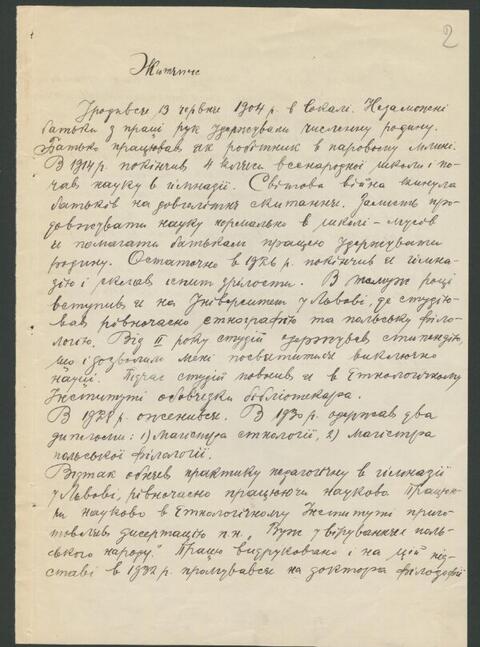 2
Життєпис
Уродився 13 червня 1904 р. в Сокалі. Незаможні
батьки з праці рук удержували численну родину.
Батько працював як робітник в паровому млині.
В 1914 р. покінчив 4 кляси вселюдної школи і по-
чав науку в гімназії. Світова війна кинула
батьків на довголітнє скитання. Замість про-
довжувати науку нормально в школі – мусів
я помагати батькам працею удержувати
родину. Остаточно в 1926 р. покінчив я гімна-
зію і склав іспит зрілости. В тому ж році
вступив я на Університет у Львові, де студію-
вав рівночасно етнографію та польську філо-
логію. Від II року студій одержував стипендію,
що і дозволили мені посвятитися виключно
науці. Підчас студій повнив я в Етнологічному
Інституті обовязки бібліотекара.
В 1928 р. оженився. В 1930 р. одержав два
дипломи: 1) Магістра етнології, 2) Магістра
польської філології.
Відтак відбув практику педагогічну в гімназії
у Львові, рівночасно працюючи науково. Працю-
ючи науково в Етнологічному Інституті приго-
товив дисертацію п.н. „Вуж у віруваннях поль-
ського народу." Працю видруковано і на цій під-
ставі в 1932 р. промувався на доктора філософії